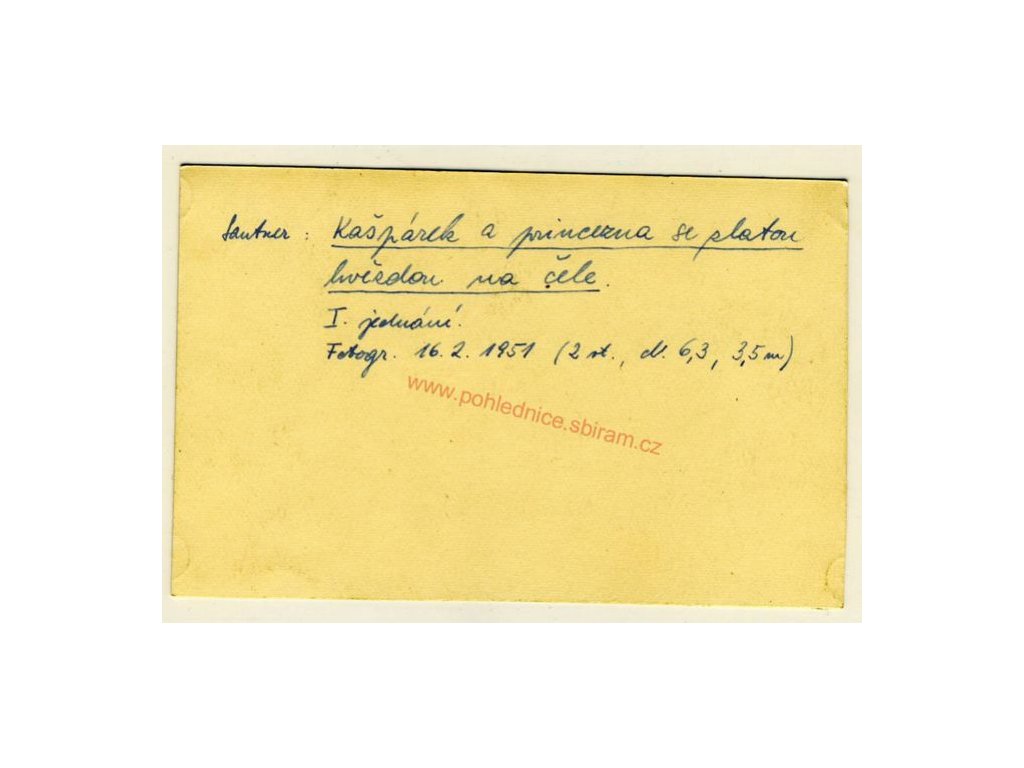 Santner : Kašpárek a princezna se zlatou
hvězdou na čele.
I. jednání.
Fotogr. 16. 2. 1951 (2 st., cl. 6,3, 3,5 m)
www.pohlednice.sbiram.cz